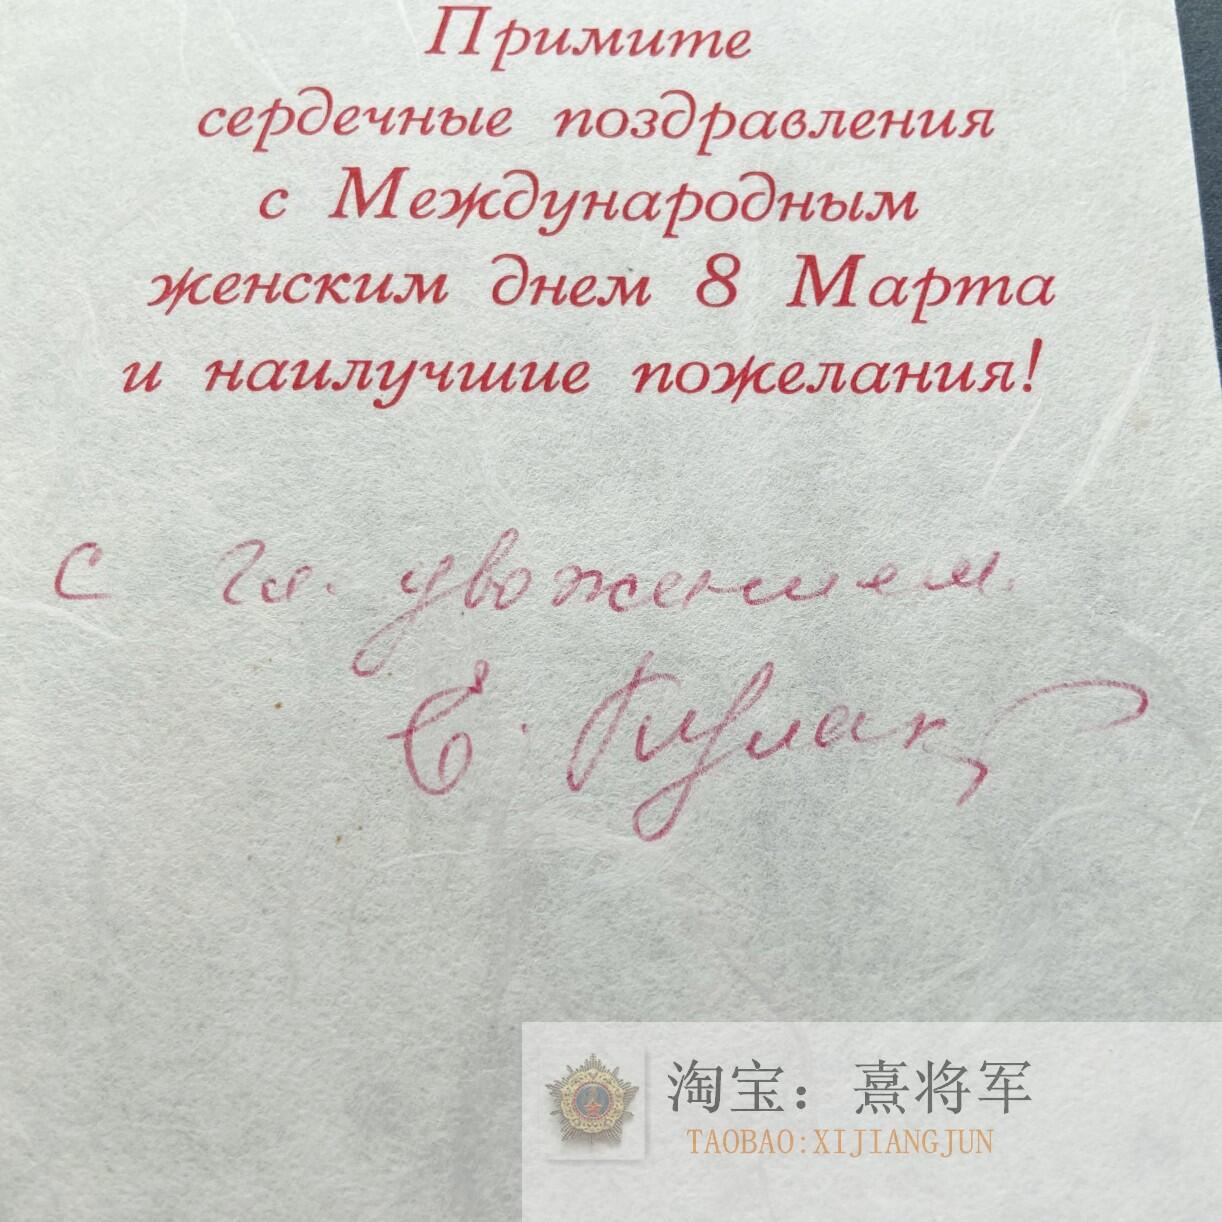 Примите
сердечные поздравления
с Международным
женским днем 8 Марта
и наилучшие пожелания!
с гл. уважением.
淘宝：熹将军
TAOBAO:XIJIANGJUN